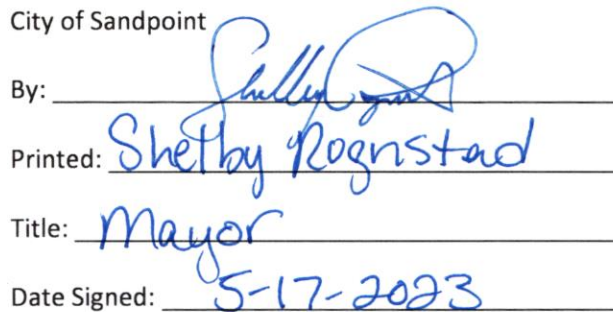 City of Sandpoint
By: Shelby Rognstad
Printed: Shelby Rognstad
Title: Mayor
Date Signed: 5-17-2023